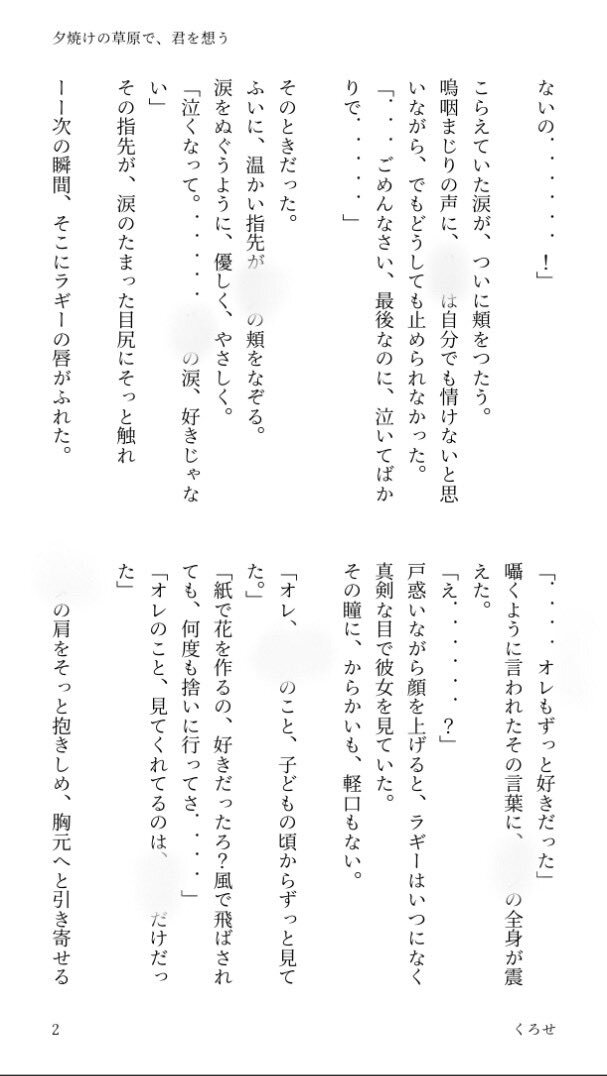 夕焼けの草原で、君を想う
ないの．．．．．！」
こらえていた涙が、ついに頬をつたう。
嗚咽まじりの声に、は自分でも情けないと思
いながら、でもどうしても止められなかった。
「．．．ごめんなさい、最後なのに、泣いてばか
りで．．．．」
そのときだった。
ふいに、温かい指先がの頬をなぞる。
涙をぬぐうように、優しく、やさしく。
「泣くなって。．．．．．の涙、好きじゃな
い」
その指先が、涙のたまった目尻にそっと触れ
ーー次の瞬間、そこにラギーの唇がふれた。
「．．．．オレもずっと好きだった」
囁くように言われたその言葉に、の全身が震
えた。
「え．．．．．？」
戸惑いながら顔を上げると、ラギーはいつになく
真剣な目で彼女を見ていた。
その瞳に、からかいも、軽口もない。
「オレ、のこと、子どもの頃からずっと見て
た。」
「紙で花を作るの、好きだったろ？風で飛ばされ
ても、何度も捨いに行ってさ．．．．」
「オレのこと、見てくれてるのは、だけだっ
た」
の肩をそっと抱きしめ、胸元へと引き寄せる
2
くろせ